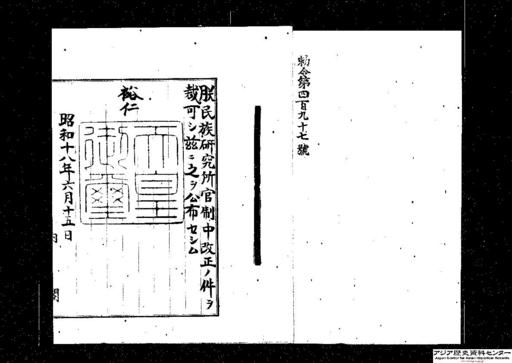 勅令第四百九十七號
朕民族研究所官制中改正ノ件ヲ
裁可シ茲ニ之ヲ公布セシム
裕仁
天皇
御璽
昭和十八年六月十五日
内閣
アジア歴史資料センター
Japan Center for Asian Historical Records